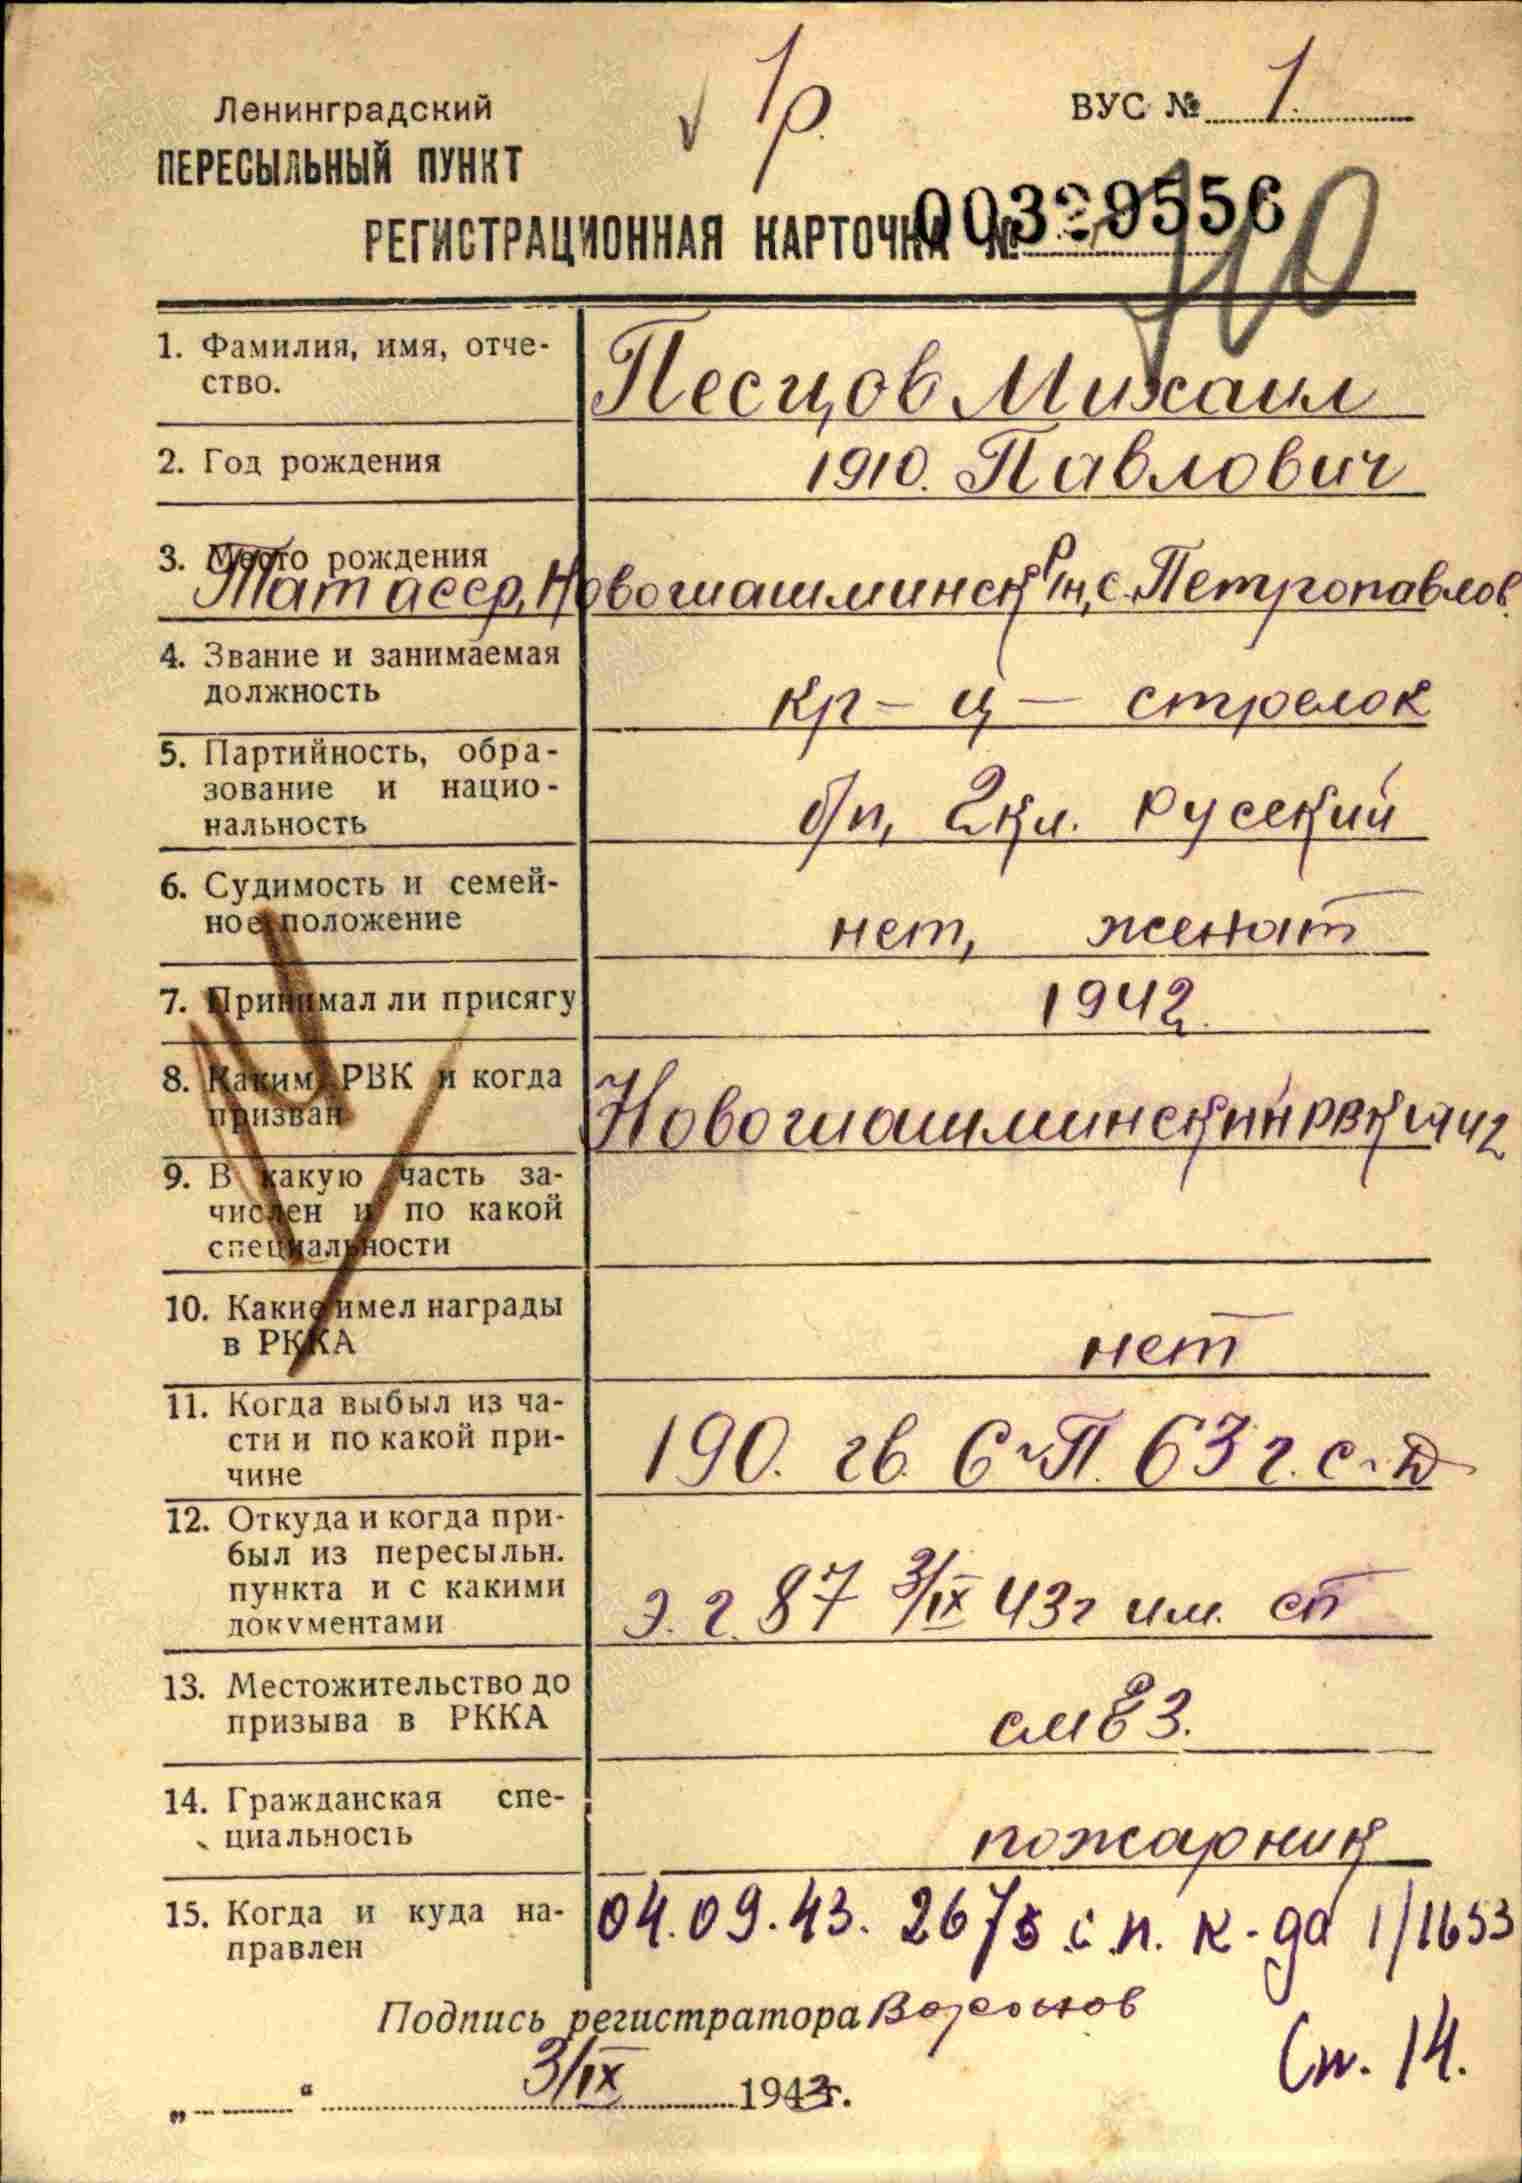 Ленинградский
ПЕРЕСЫЛЬНЫЙ ПУНКТ
1р.
ВУС № 1
РЕГИСТРАЦИОННАЯ КАРТОЧКА №
00329556
1. Фамилия, имя, отче-
ство.
Песцов Михаил
2. Год рождения
1910. Павлович
3. Место рождения
Тат асср, Новошашминск р/н, с. Петропавлов.
4. Звание и занимаемая
должность
кр-ц - стрелок
5. Партийность, обра-
зование и нацио-
нальность
б/п, 2 кл. Русский
6. Судимость и семей-
ное положение
нет, женат
7. Принимал ли присягу
1942
8. Каким РВК и когда
призван
Новошашминский РВК 1942
9. В какую часть за-
числен и по какой
специальности
10. Какие имел награды
в РККА
нет
11. Когда выбыл из ча-
сти и по какой при-
чине
190. гв. С П. 63 г. с. Д
12. Откуда и когда при-
был из пересыльн.
пункта и с какими
документами
э. г. 87 3/IX 43г им. сп
13. Местожительство до
призыва в РККА
см 3.
14. Гражданская спе-
циальность
пожарник
15. Когда и куда на-
правлен
04.09.43. 267 с.п. к-да 1/1653
Подпись регистратора
Ст. 14.
„ “ 3/IX 1943г.